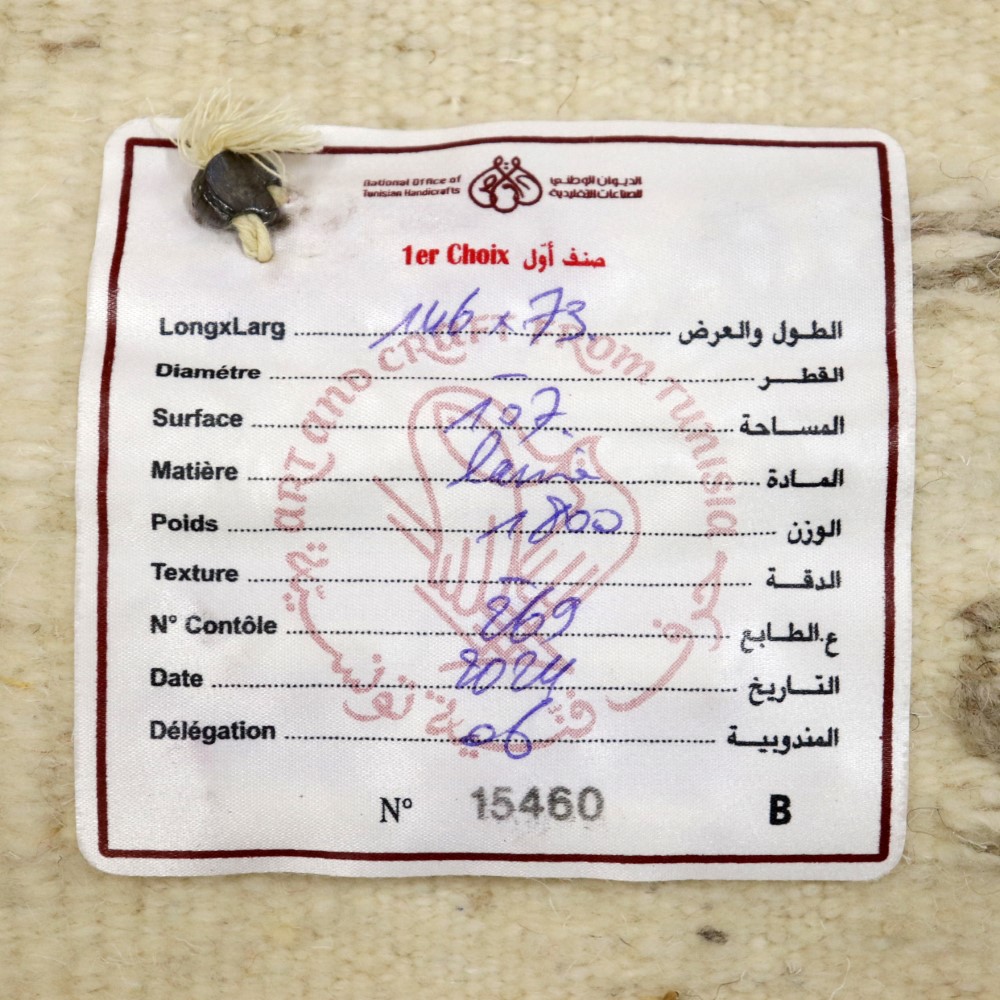 National Office of الديوان الوطني
Tunisian Handicrafts للصناعات التقليدية
1er Choix صنف أوّل
LongxLarg 146 x 73 الطول والعرض
Diamétre — القطر
Surface 107 المساحة
Matière المادة
Poids 1800 الوزن
Texture — الدقة
N° Contôle 269 ع.الطابع
Date 2024 التاريخ
Délégation 06 المندوبية
N° 15460 B
ART AND CRAFT FROM TUNISIA